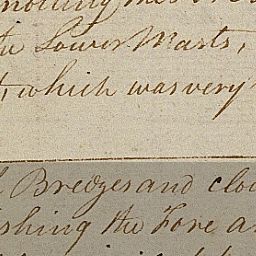 the Lower Masts,
, which was very
Breezes and clo
shing the Fore a